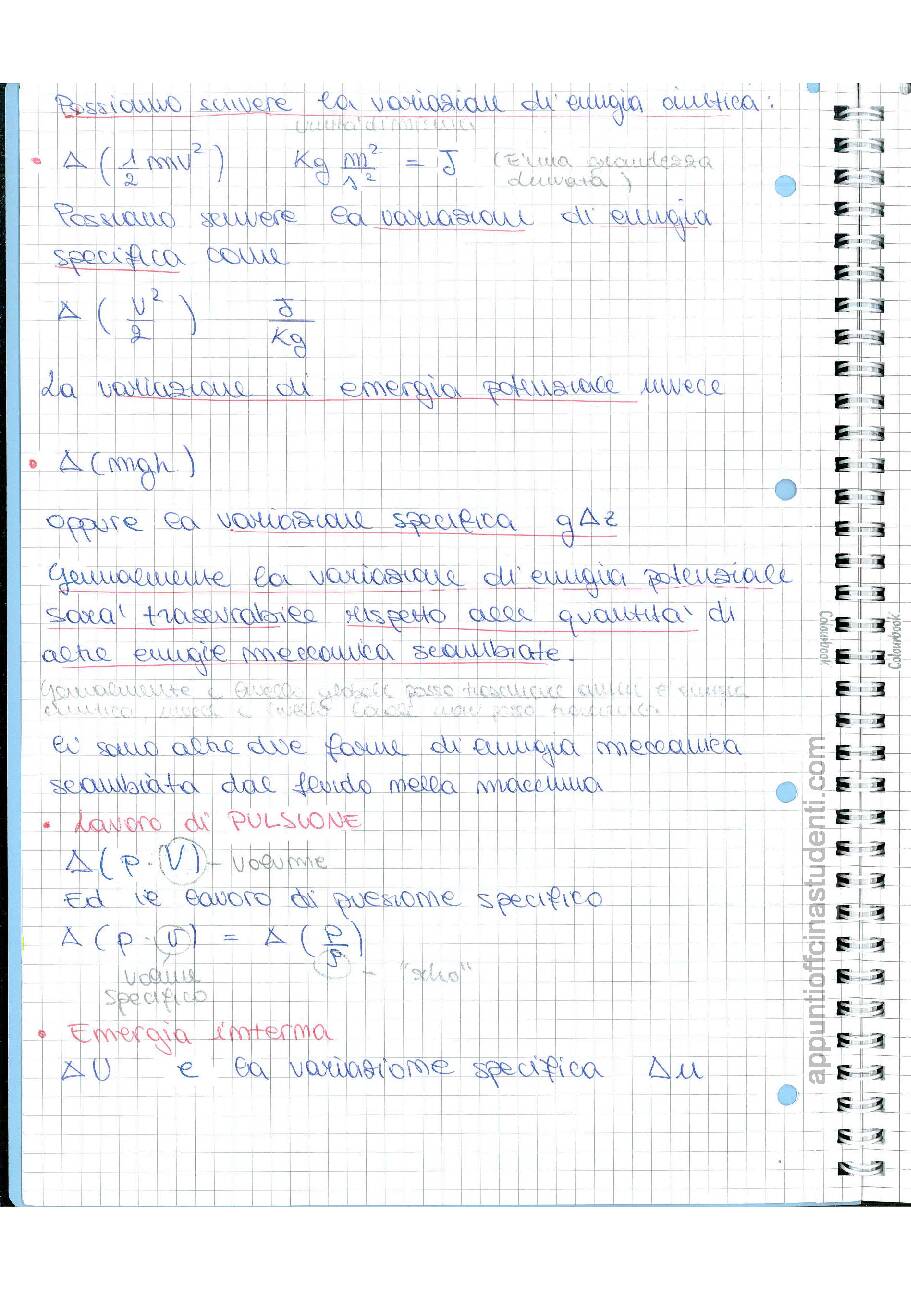 Possiamo scrivere la variazione di energia cinetica:
unità di misura
• Δ(1/2 mv²) Kg m²/s² = J (È una grandezza
derivata)
Possiamo scrivere la variazione di energia
specifica come
Δ(v²/2) J/Kg
La variazione di energia potenziale invece
• Δ(mgh)
oppure la variazione specifica gΔz
Generalmente la variazione di energia potenziale
sara' trascurabile rispetto alle quantita' di
altre energie meccanica scambiate.
Generalmente a livello globale posso trascurare anche l'energia
cinetica, invece a livello locale non posso trascurarla
Ci sono altre due forme di energia meccanica
scambiata dal fluido nella macchina
• Lavoro di PULSIONE
Δ(p·V) - volume
Ed il lavoro di pulsione specifico
Δ(p·v) = Δ(p/ρ)
volume - "rho"
specifico
• Energia interna
ΔU e la variazione specifica Δu
Colourbook
Colourbook
appuntiofficinastudenti.com